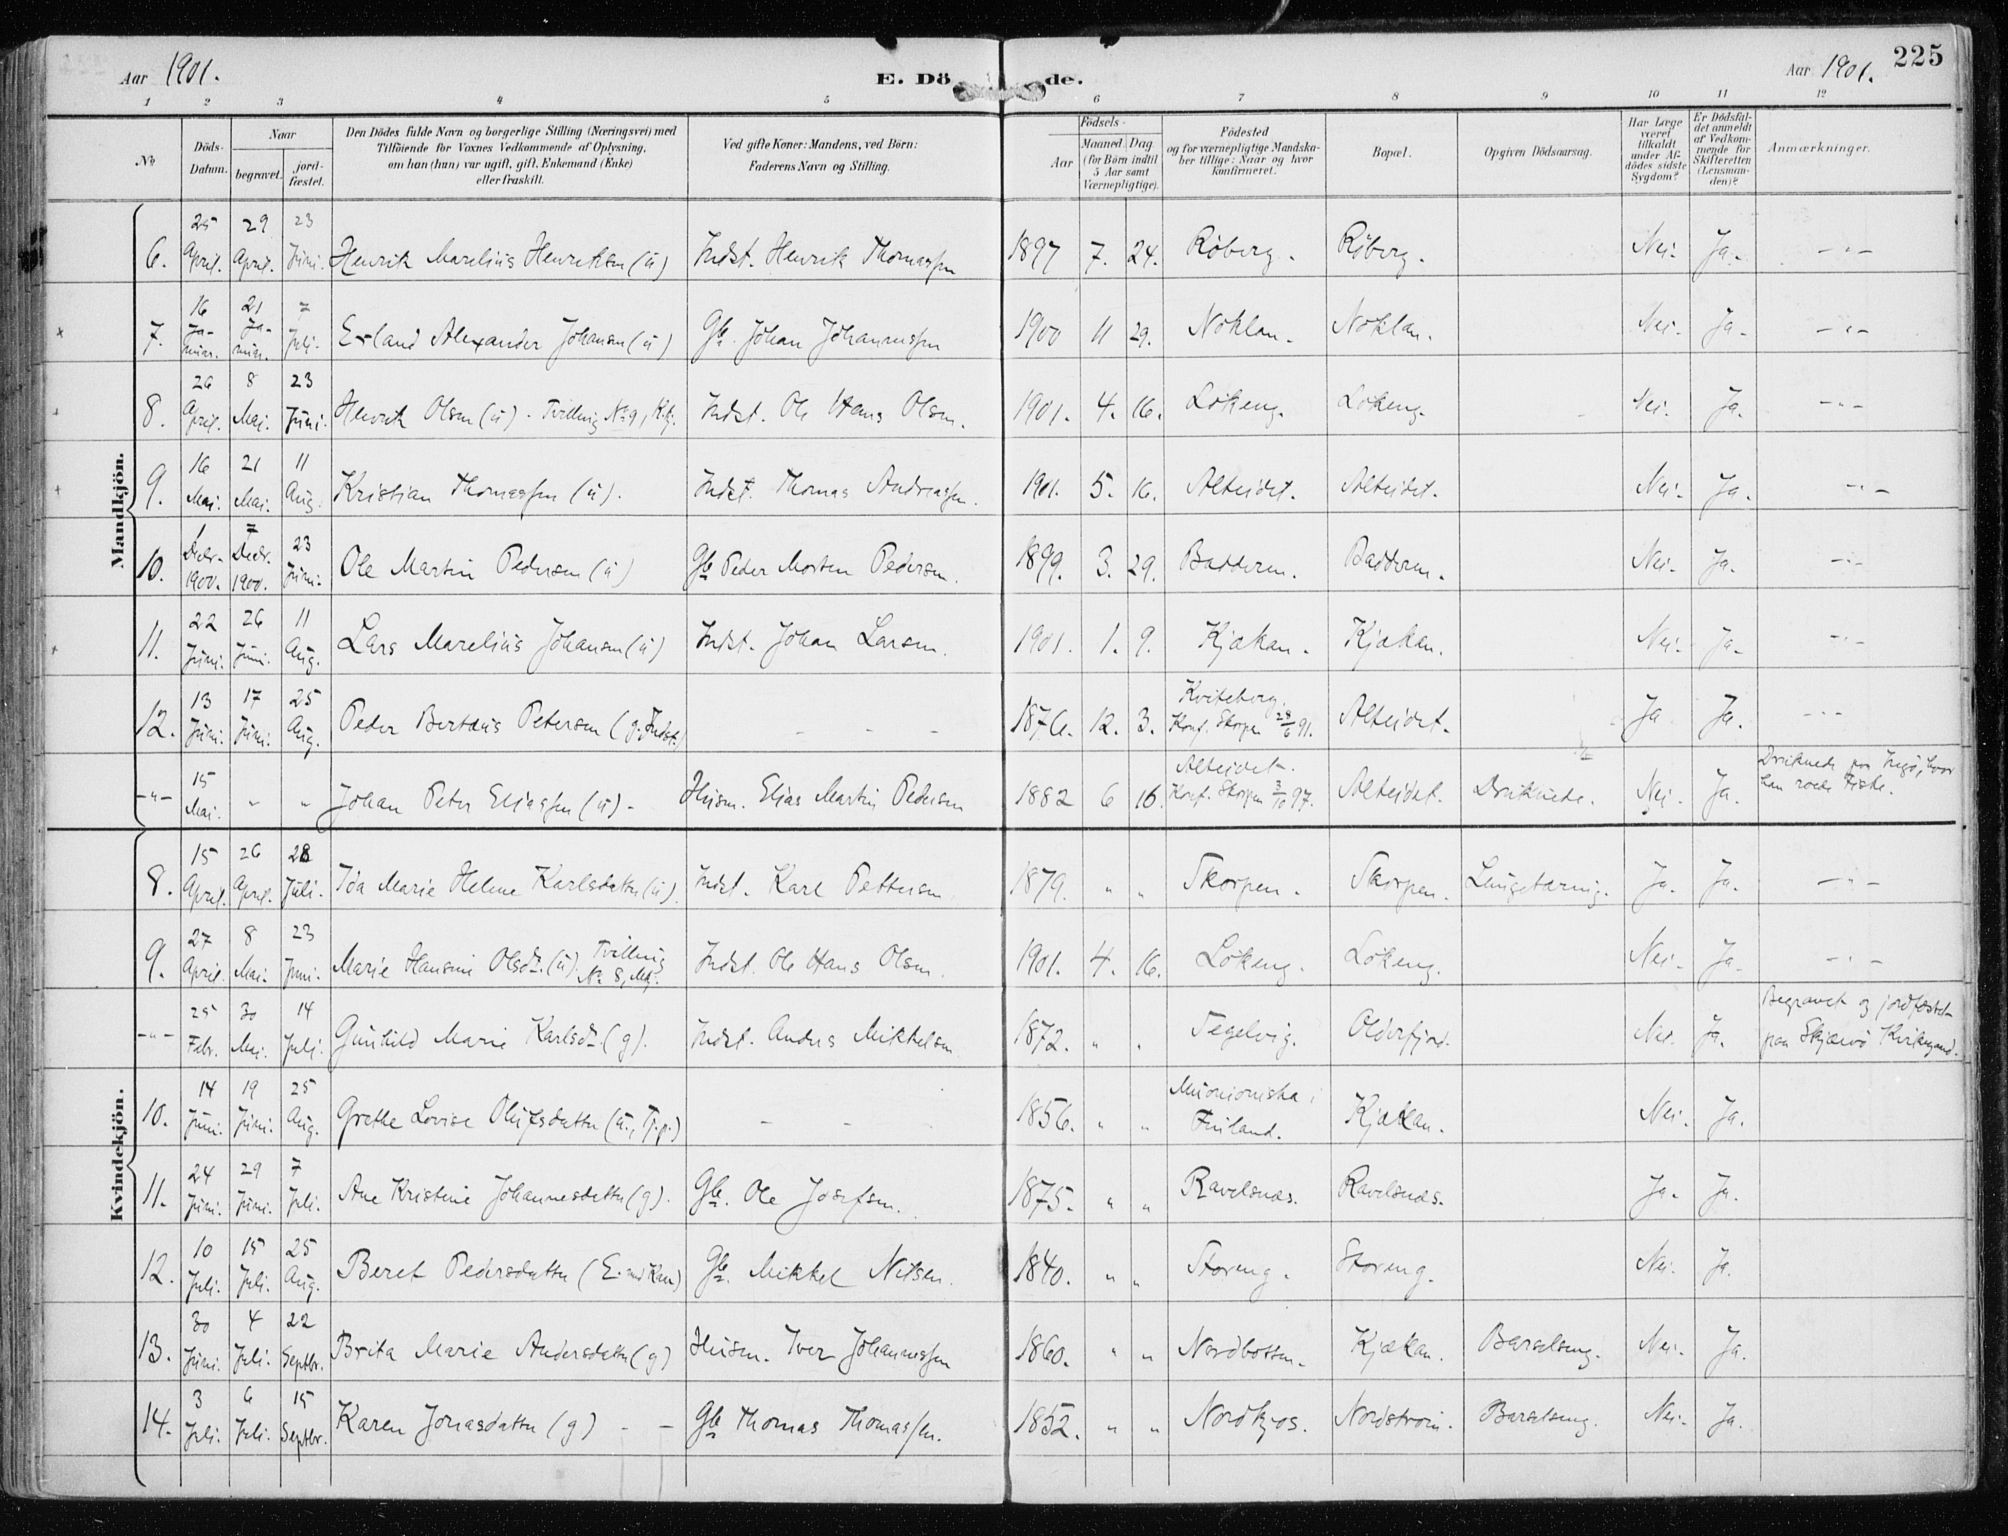 Aar 1901.
E. Dö
de.
Aar 1901.
225
1 2 3 4 5 6 7 8 9 10 11 12
No
Döds-
Datum.
Naar
begravet.
jord-
fæstet.
Den Dödes fulde Navn og borgerlige Stilling (Næringsvei) med
Tilföiende for Voxnes Vedkommende af Oplysning,
om han (hun) var ugift, gift, Enkemand (Enke)
eller fraskilt.
Ved gifte Koner: Mandens, ved Börn:
Faderens Navn og Stilling.
Födsels-
Aar
Maaned Dag
(for Börn indtil
5 Aar samt
Værnepligtige).
Födested
og for værnepligtige Mandska-
ber tillige: Naar og hvor
konfirmeret.
Bopæl.
Opgiven Dödsaarsag.
Har Læge
været
tilkaldt
under Af-
dödes sidste
Sygdom?
Er Dödsfal-
det anmeldt
af Vedkom-
mende for
Skifteretten
(Lensman-
den)?
Anmærkninger.
Mandkjön.
6. 25 April. 29 April. 23 Juni. Henrik Marelius Henriksen (u) Indst. Henrik Thomassen 1897 7. 24. Röberg. Röberg. Nei- Ja- -"-
7. 16 Ja- nuar. 21 Ja- nuar. 7 Juli. Erland Alexander Johansen (u) Gb. Johan Johannessen 1900 11 29. Noklan. Noklan. Nei- Ja- -"-
8. 26 April. 8 Mai. 23 Juni. Henrik Olsen (u) - Tvilling No 9, Kkj. Indst. Ole Hans Olsen. 1901. 4. 16. Lökeng. Lökeng. Nei- Ja- -"-
9. 16 Mai. 21 Mai. 11 Aug. Kristian Thomassen (u). Indst. Thomas Andreassen. 1901. 5. 16. Alteidet. Alteidet. Nei- Ja- -"-
10. 1 Decbr. 1900. 7 Decbr. 1900. 23 Juni. Ole Martin Pedersen (u) Gb Peder Morten Pedersen. 1899. 3. 29. Badderen. Badderen. Nei- Ja- -"-
11. 22 Juni. 26 Juni. 11 Aug. Lars Marelius Johansen (u) Indst. Johan Larsen. 1901. 1. 9. Kjækan. Kjækan. Nei- Ja- -"-
12. 13 Juni. 17 Juni. 25 Aug. Peder Bertæus Petersen (g. Indst.) - - - 1876. 12. 3. Kviteberg. Konf. Skorpen 28/6 91. Alteidet. Ja Ja. -"-
-"- 15 Mai. " " Johan Peter Eliassen (u) - Husm. Elias Martin Pedersen 1882 6 16. Alteidet. Konf. Skorpen 3/10 97. Alteidet. Druknede. Nei- Ja. Druknede paa Ingö, hvor
han roede Fiske.
Kvindekjön.
8. 15 April. 26 April. 28 Juli. Ida Marie Helene Karlsdatter (u). Indst. Karl Pettersen 1879. " " Skorpen. Skorpen. Lungetæring. Ja. Ja. -"-
9. 27 April. 8 Mai. 23 Juni. Marie Hansine Olsdr. (u). Tvilling No 8, Mkj. Indst. Ole Hans Olsen. 1901. 4. 16. Lökeng. Lökeng. Nei- Ja- -"-
-"- 25 Febr. 30 Mai. 14 Juli. Gunhild Marie Karlsdr. (g). Indst. Anders Mikkelsen 1872. " " Tegelvig. Olderfjord. Nei. Ja. Begravet og jordfæstet
paa Skjærvö Kirkegaard.
10. 14 Juni. 19 Juni. 25 Aug. Grethe Lovise Olufsdatter (u., Tj.p.) - - 1856. " " Muonioniska i
Finland. Kjækan. Nei- Ja.
11. 24 Juni. 29 Juni. 7 Juli. Ane Kristine Johannesdatter (g). Gb. Ole Josefsen. 1875. " " Ravelsnæs. Ravelsnæs. Ja- Ja.
12. 10 Juli. 15 Juli. 25 Aug. Beret Pedersdatter (E. Gb. Mikkel Nilsen. 1840. " " Storeng. Storeng. Nei. Ja.
13. 30 Juni. 4 Juli. 22 Septbr. Brita Marie Andersdatter (g) Husm. Iver Johannessen 1860. " " Nordbotten. Kjækan. Barselseng. Nei- Ja.
14. 3 Juli. 6 Juli. 15 Septbr. Karen Jonasdatter (g) - - Gb Thomas Thomassen. 1852. " " Nordkjos. Nordström. Barselseng. Nei- Ja.